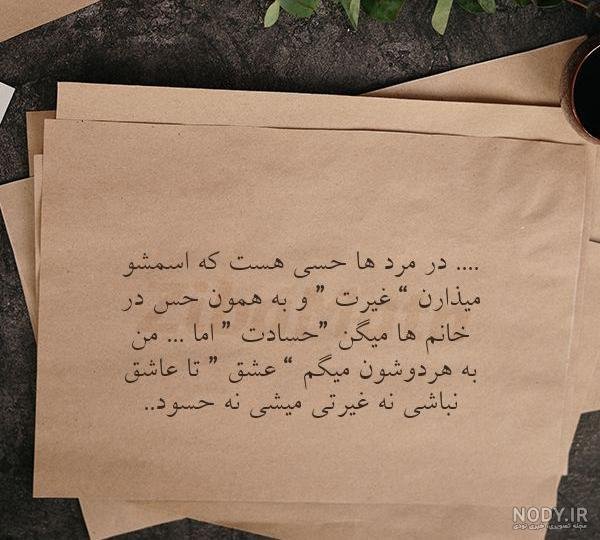 .... در مرد ها حسی هست که اسمشو
میذارن “ غیرت ” و به همون حس در
خانم ها میگن ”حسادت ” اما ... من
به هردوشون میگم “ عشق ” تا عاشق
نباشی نه غیرتی میشی نه حسود..
NODY.IR
مجله تصویری، خبری نودی